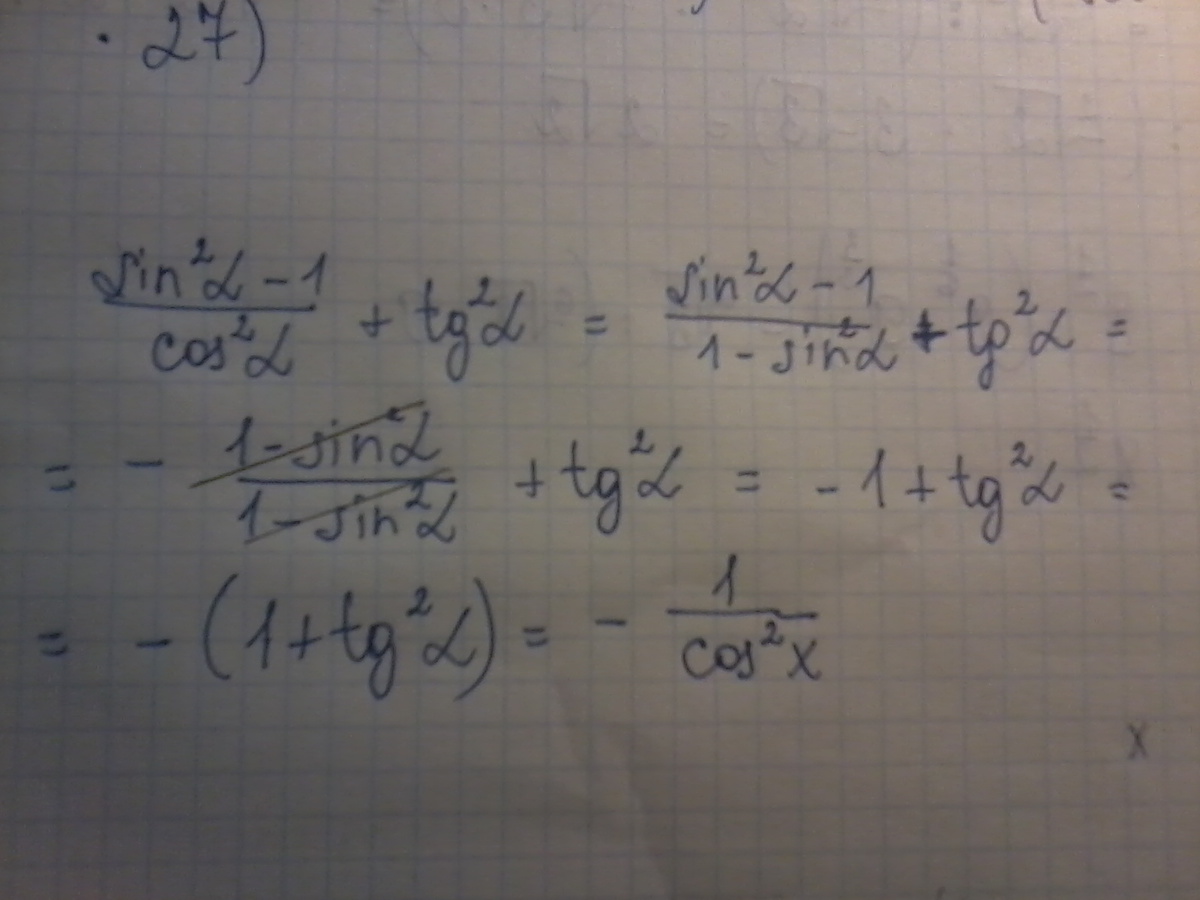 · 27)
sin²α - 1 / cos²α + tg²α = sin²α - 1 / 1 - sin²α + tg²α =
= - 1 - sin²α / 1 - sin²α + tg²α = - 1 + tg²α =
= - (1 + tg²α) = - 1 / cos²x
x